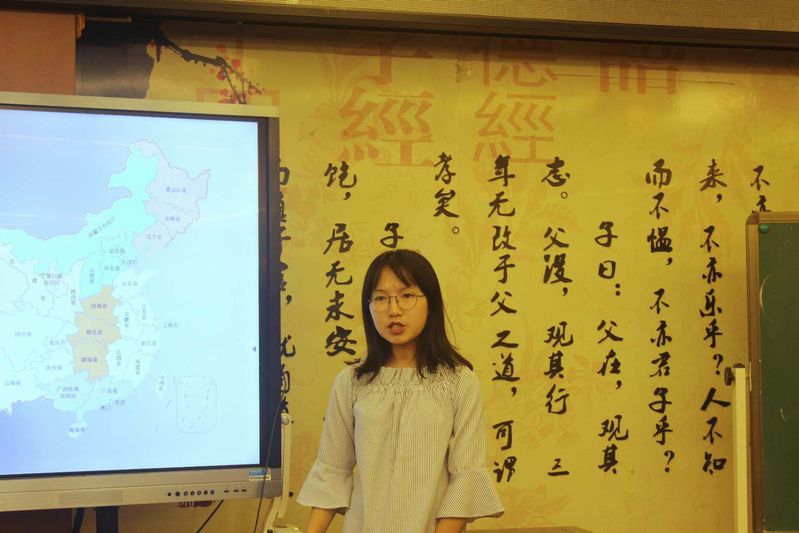 德經
子經
語
不
来，不亦乐乎？人不知
而不愠，不亦君子乎？
子曰：父在，观其
志。父没，观其行 三
年无改于父之道，可谓
孝矣。
子
饱，居无求安
黑龙江省
吉林省
辽宁省
内蒙古自治区
北京市
天津市
河北省
山西省
山东省
宁夏回族
自治区
陕西省
河南省
江苏省
安徽省
上海市
湖北省
四川省
重庆市
浙江省
湖南省
江西省
贵州省
福建省
云南省
广西壮族
自治区
广东省
台湾省
香港
澳门
海南省